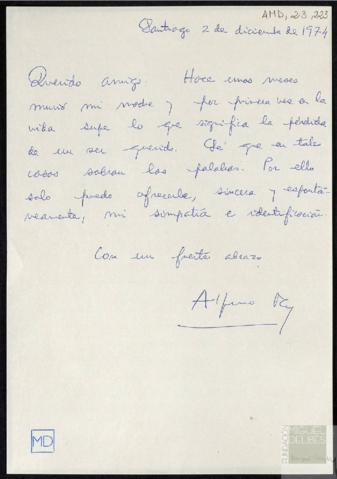 AMD, 23, 223
Santiago 2 de diciembre de 1974
Querido amigo: Hace unos meses
murió mi madre y por primera vez en la
vida supe lo que significa la pérdida
de un ser querido. Sé que en tales
casos sobran las palabras. Por ello
solo puedo ofrecerle, sincera y espontá-
neamente, mi simpatía e identificación.
Con un fuerte abrazo
MD
FUNDACIÓN
MIGUEL
DELIBES